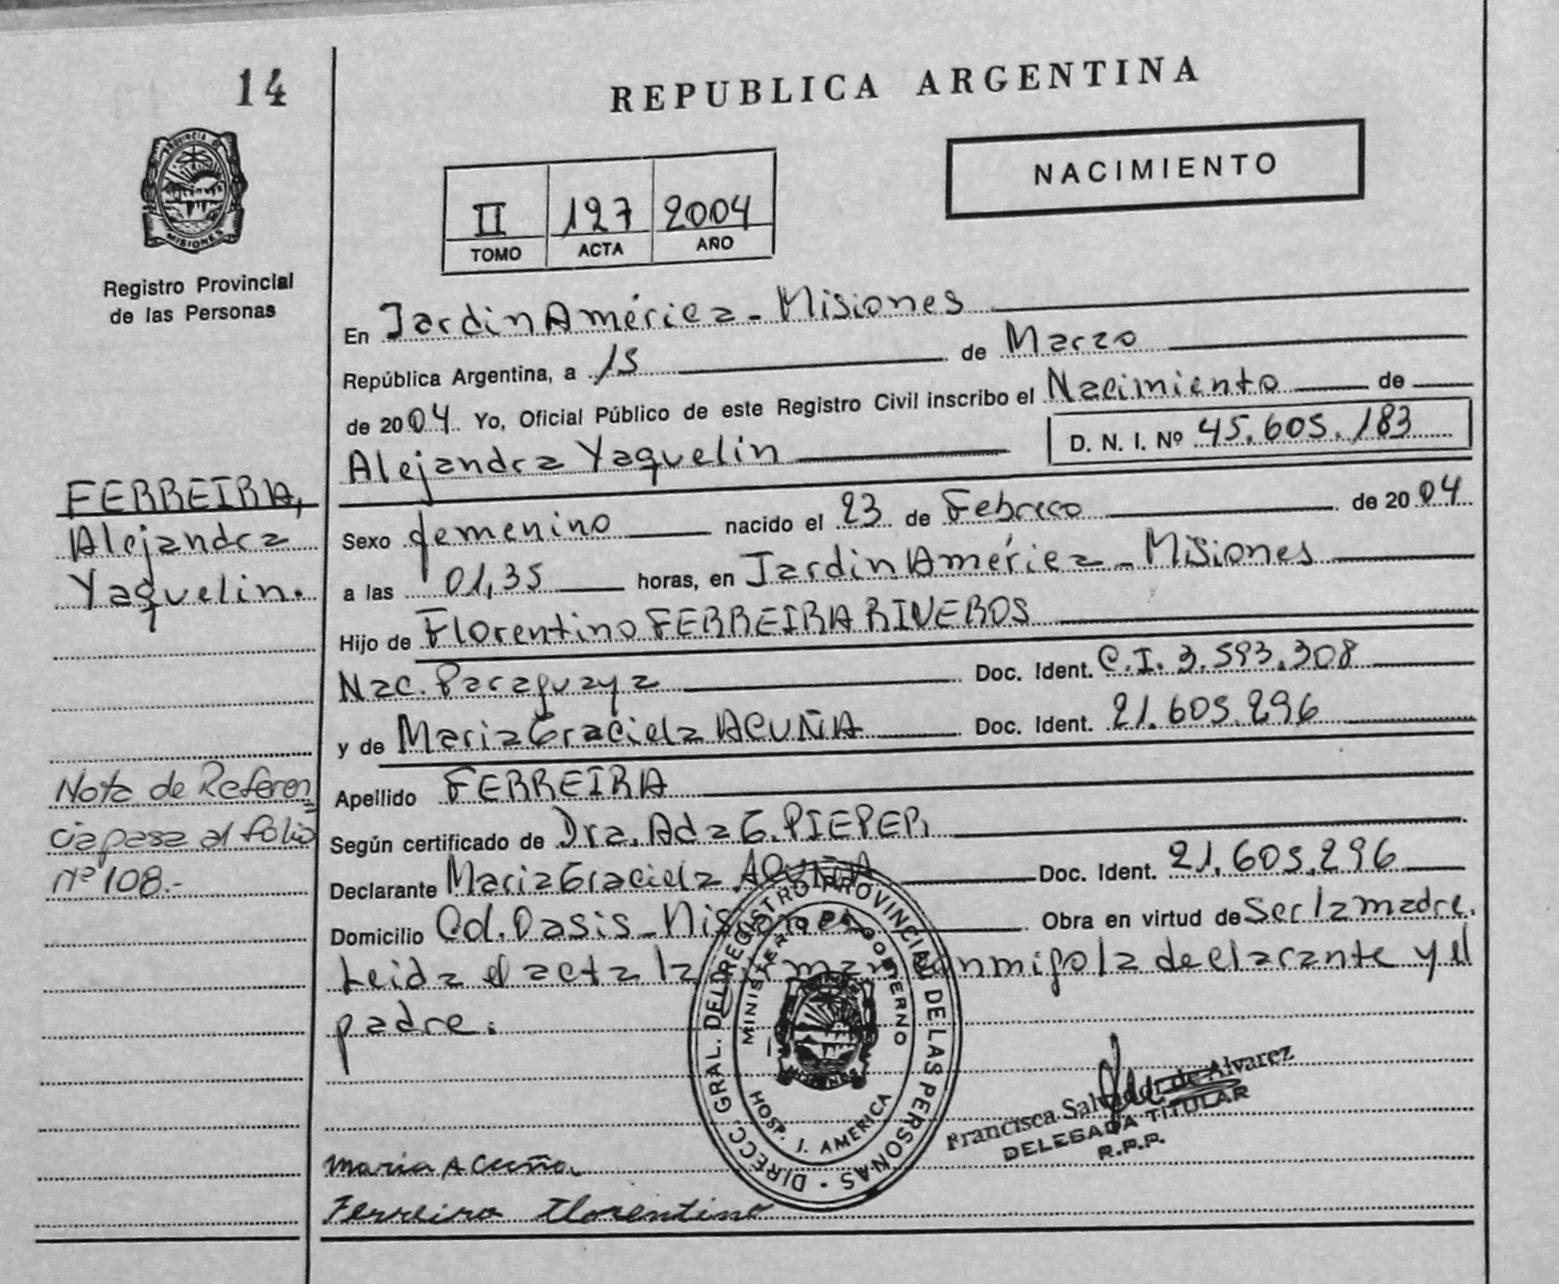 14
REPUBLICA ARGENTINA
PROVINCIA DE
MISIONES
NACIMIENTO
II 127 2004
TOMO ACTA AÑO
Registro Provincial
de las Personas
En Jardin América - Misiones
República Argentina, a 15 de Marzo
de 2004. Yo, Oficial Público de este Registro Civil inscribo el Nacimiento de
D. N. I. Nº 45.605.183
Alejandra Yaquelin
FERREIRA,
Alejandra
Yaquelin.
Sexo femenino nacido el 23 de Febrero de 2004
a las 01,35 horas, en Jardin América - Misiones
Hijo de Florentino FERREIRA RIVEROS
Nac. Paraguaya Doc. Ident. C.I. 3.593.308
y de Maria Graciela ACUÑA Doc. Ident. 21.605.296
Apellido FERREIRA
Nota de Referen
cia pasa al folio
nº 108.-
Según certificado de Dra. Ada G. PIEPER.
Declarante Maria Graciela ACUÑA Doc. Ident. 21.605.296
Domicilio Cd. Oasis - Misiones Obra en virtud de Ser la madre.
Leida el acta la firman conmigo la declarante y el
padre.
DIRECC. GRAL. DEL REGISTRO PROVINCIAL DE LAS PERSONAS
MINISTERIO DE GOBIERNO
HOSP. J. AMERICA
Francisca Salvador de Alvarez
DELEGADA TITULAR
R.P.P.
Maria Acuña.
Ferreira Florentino